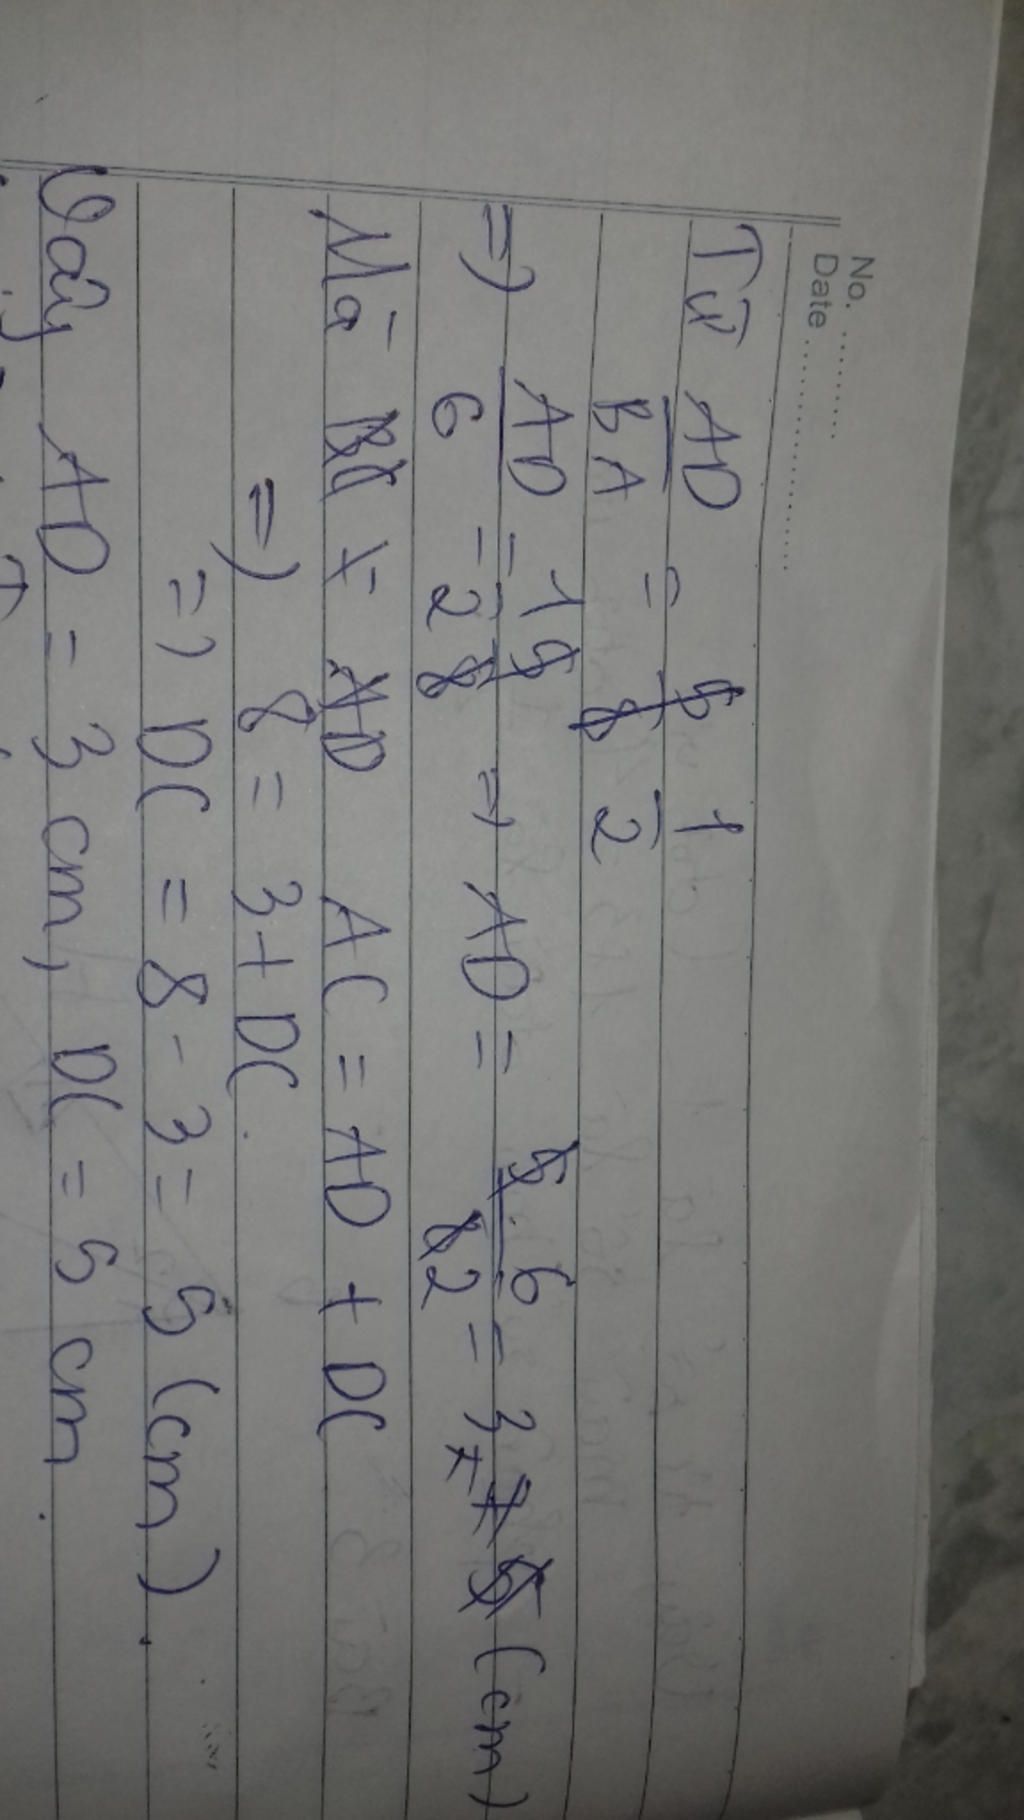 No. ............
Date .....................
Từ AD/BA = 1/2
=> AD/6 = 1/2 => AD = 6/2 = 3 (cm)
Mà AC = AD + DC
=> 8 = 3 + DC
=> DC = 8 - 3 = 5 (cm).
Vậy AD = 3 cm, DC = 5 cm.